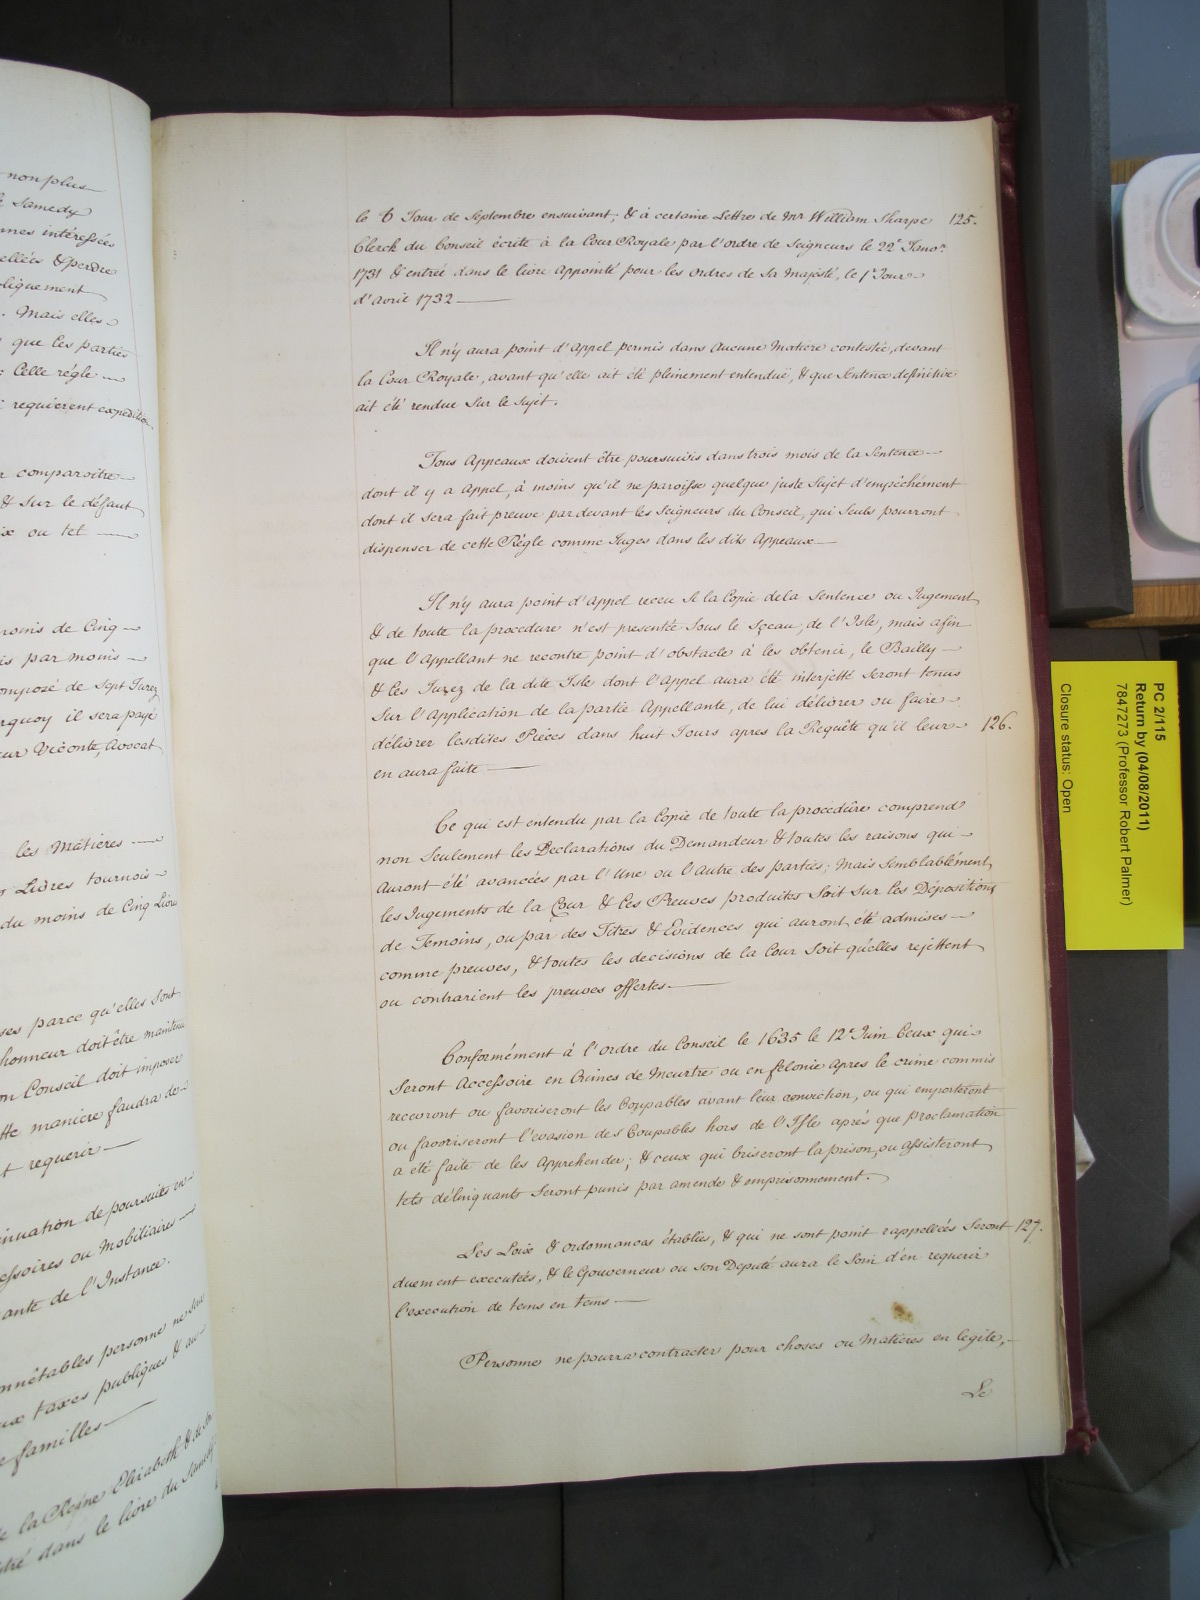 nonplus
Samedy
intéressées
& perdre
Mais elles
que les parties
Celle régle
requierent expedition
comparoitre
& Sur le défaut
ou tel
moins de Cinq
par moins
composé de Sept Jurez
il sera payé
Viconte, Avocat
les Matieres
Livres tournois
du moins de Cinq Livres
parce qu'elles Sont
honneur doit être maintenu
Conseil doit imposer
maniere faudra de
requerir
de poursuites en
ou Mobiliaires
de l'Instance.
personne ne sera
taxes publiques & au
familles
la Reine Elizabeth & de Son
dans le livre du Samedy
le 6 Jour de Septembre ensuivant; & à certaine Lettres de Mr William Sharpe 125.
Clerck du Conseil écrite à la Cour Royale par l'ordre de Seigneurs le 22e Janvr.
1731 & entrée dans le livre Appointé pour les ordres de Sa Majesté, le 1e Jour
d'Avril 1732
Il n'y aura point d'Appel permis dans Aucune Matiere contestée, devant
la Cour Royale, avant qu'elle ait été pleinement entendue, & que Sentence definitive
ait été rendue Sur le Sujet.
Tous Appeaux doivent être poursuivis dans trois mois de la Sentence
dont il y a Appel, à moins qu'il ne paroisse quelque juste Sujet d'empêchément
dont il sera fait preuve par devant les Seigneurs du Conseil, qui Seuls pourront
dispenser de cette Régle comme Juges dans les dits Appeaux
Il n'y aura point d'Appel receu Si la Copie de la Sentence ou Jugement
& de toute la procedure n'est presentée Sous le Sceau, de l'Isle, mais afin
que l'Appellant ne recontre point d'obstacle à les obtenir, le Bailly
& les Jurez de la dite Isle dont l'Appel aura été interjetté Seront tenus
Sur l'Application de la partie Appellante, de lui délivrer ou faire
délivrer lesdites Piéces dans huit Jours apres la Requête qu'il leur 126.
en aura faite
Ce qui est entendu par la Copie de toute la procedûre comprend
non Seulement les Declarations du Demandeur & toutes les raisons qui
Auront été avancées par l'Une ou l'Autre des parties; Mais Semblablement
les Jugements de la Cour & les Preuves produites Soit Sur les Dépositions
de Temoins, ou par des Titres & Evidences qui auront été admises
comme preuves, & toutes les decisions de la Cour Soit quelles rejettent
ou contrarient les preuves offertes.
Conformément à l'ordre du Conseil le 1635 le 12e Juin Ceux qui
Seront Accessoire en Crimes de Meurtre ou en felonie Apres le crime commis
recevront ou favoriseront les Coupables avant leur conviction, ou qui emporteront
ou favoriseront l'evasion des Coupables hors de l'Isles aprés que proclamation
a été faite de les Apprehender; & ceux qui briseront la prison, ou Assisteront
tels délinquants Seront punis par amende & emprisonnement.
Les Loix & ordonnances établies, & qui ne sont point rappellées Seront 127.
duement executées, & le Gouverneur ou son Deputé aura le Soin d'en requerir
l'execution de tems en tems
Personne ne pourra contracter pour choses ou Matieres en legite,
Le
PC 2/115
Return by (04/08/2011)
7847273 (Professor Robert Palmer)
Closure status: Open